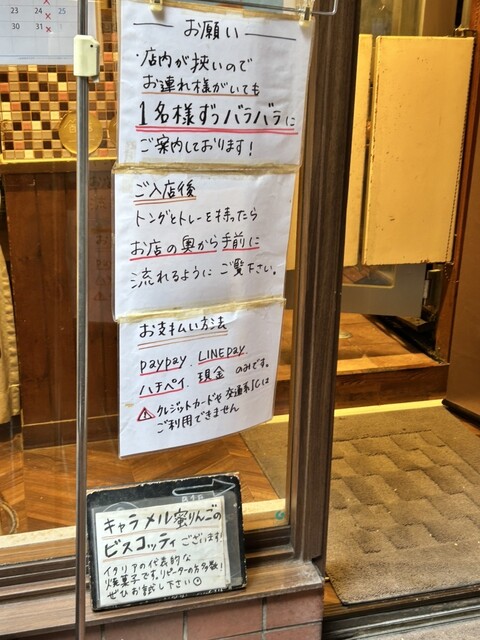 23 24 25
30 31
お願い
・店内が狭いので
お連れ様がいても
1名様ずつバラバラに
ご案内しております!
ご入店後
トングとトレーを持ったら
お店の奥から手前に
流れるように ご覧下さい。
お支払い方法
paypay、LINEpay、
ハチペイ、現金 のみです。
クレジットカードや交通系ICは
ご利用できません
キャラメル蜜りんごの
ビスコッティ ございます!
イタリアの代表的な
焼菓子です。リピーターの方多数!
ぜひお試し下さい